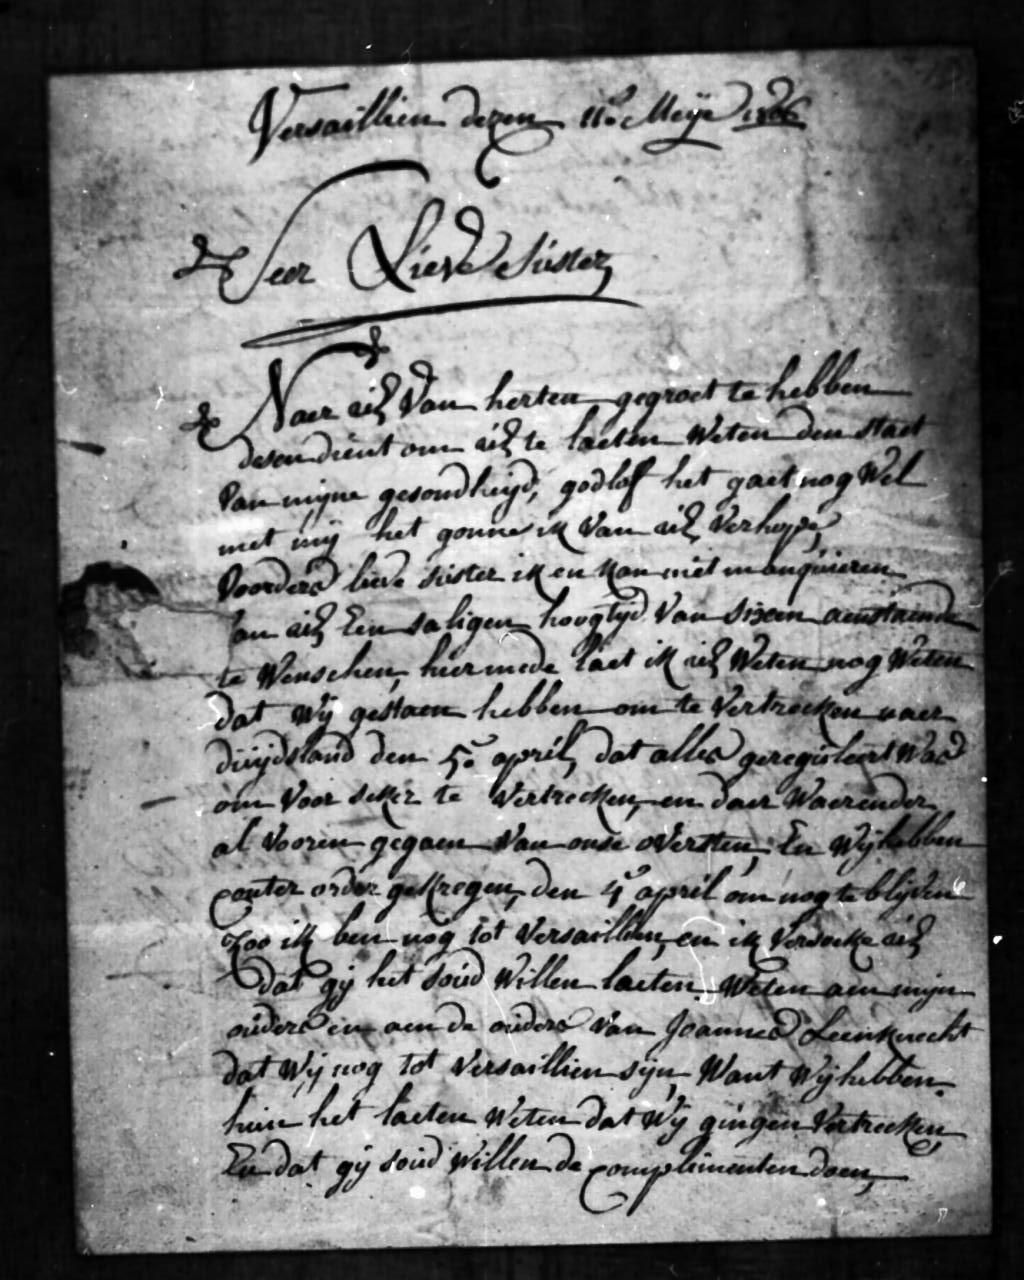 Versaillien dezen 11e Meije 1806
Seer Lieve Suster
Naer ul Van herten gegroet te hebben
desen dient om ul te laeten Weten den staet
Van mijne gesondheijd, godlof het gaet nog Wel
met mij het gonne ik Van ul Verhope,
Voorders lieve suster ik en kan niet manquieren
van ul Een saligen hoogtyd Van aenstaende
te Wenschen, hiermede laet ik ul Weten nog Weten
dat Wij gestaen hebben om te Vertrecken naer
duijdsland den 5e april, dat alles gereguleert Was
om Voor seker te Vertrecken, en daer Waerender
al Vooren gegaen Van onse oversten, En Wij hebben
conter order gekregen, den 4e april om nog te blijven
Zoo ik ben nog tot Versaillien, en ik Versoeke ul
dat gij het soud Willen laeten Weten aen mijn
ouders en aen de ouders van Joannes Leenknecht
dat Wij nog tot Versaillien sijn, Want Wij hebben
hun het laeten Weten dat Wij gingen Vertrecken,
En dat gij soud Willen de complimenten doen,